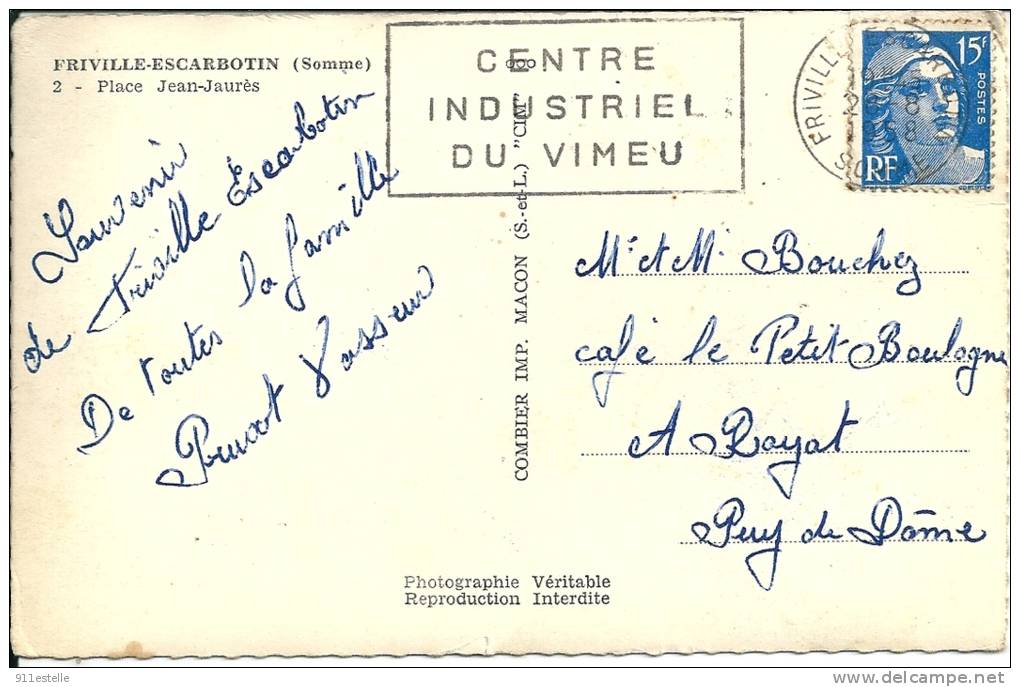 FRIVILLE-ESCARBOTIN (Somme)
2 - Place Jean-Jaurès
CENTRE
INDUSTRIEL
DU VIMEU
15f
POSTES
RF
Souvenir
de Friville Escarbotin
De toutes la famille
Vasseur
COMBIER IMP. MACON (S.-et-L.) "CIM"
Mr et Me Bouchez
café le Petit Boulogne
A Royat
Puy de Dôme
Photographie Véritable
Reproduction Interdite
911estelle
delcampe.net